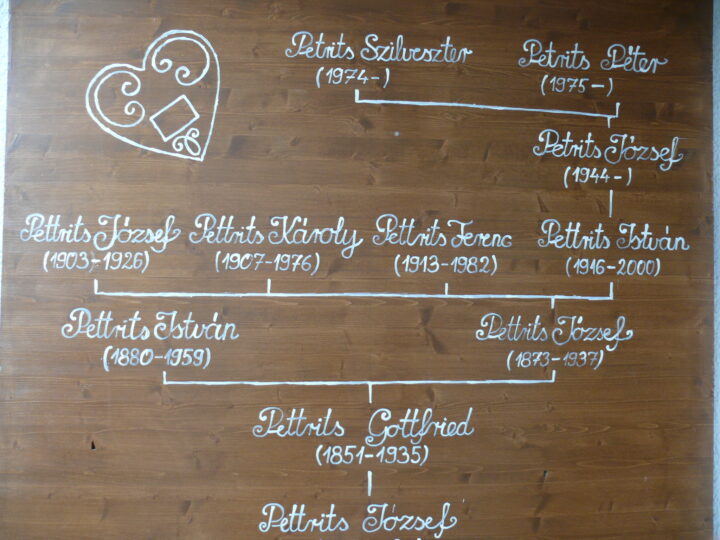 Petrits Szilveszter
(1974-)
Petrits Péter
(1975-)
Petrits József
(1944-)
Pettrits József
(1903-1926)
Pettrits Károly
(1907-1976)
Pettrits Ferenc
(1913-1982)
Pettrits István
(1916-2000)
Pettrits István
(1880-1959)
Pettrits József
(1873-1937)
Pettrits Gottfried
(1851-1935)
Pettrits József